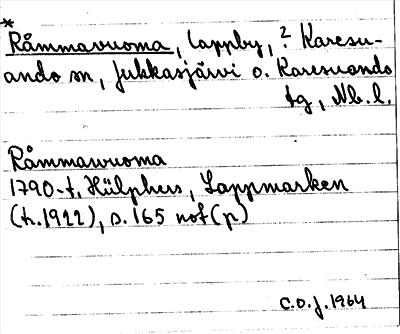 *
Råmmavuoma, lappby, ? Karesu-
ando sn, Jukkasjärvi o. Karesuando
tg, Nb. l.
Råmmawuoma
1790-t. Hülphers, Lappmarken
(tr. 1922), s. 165 not (p)
C.O.J. 1964